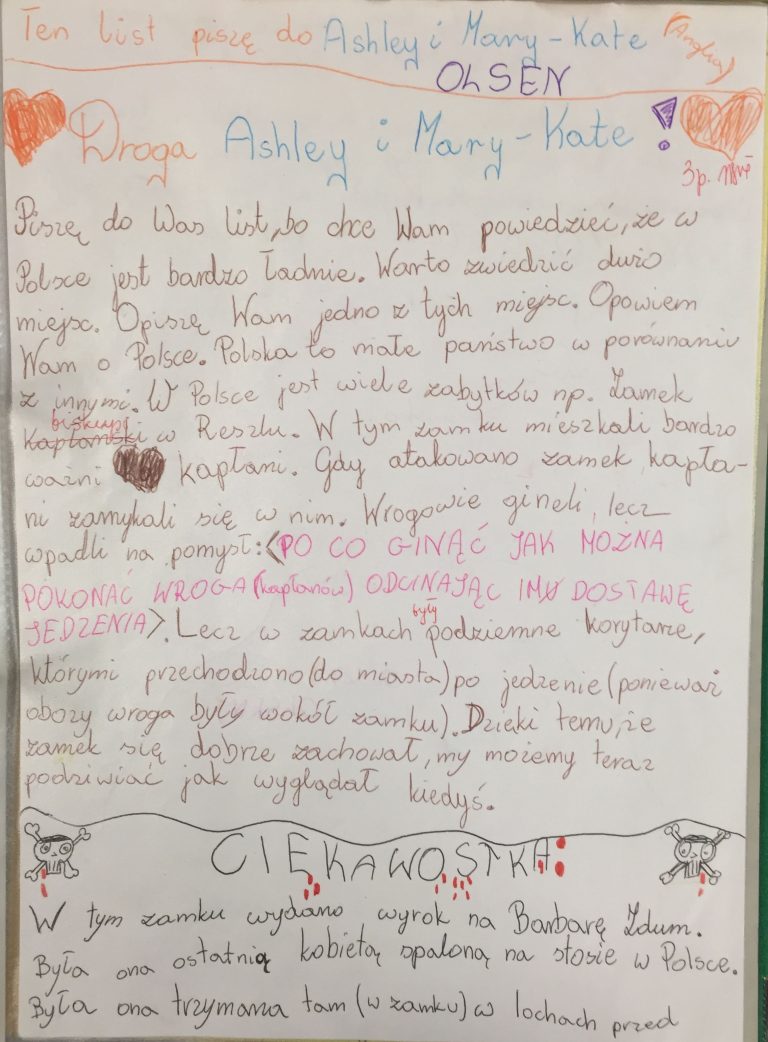 Ten list piszę do Ashley i Mary-Kate (Anglia)
OLSEN
Droga Ashley i Mary-Kate!
3p.
Piszę do Was list, bo chce Wam powiedzieć, że w
Polsce jest bardzo ładnie. Warto zwiedzić dużo
miejsc. Opiszę Wam jedno z tych miejsc. Opowiem
Wam o Polsce. Polska to małe państwo w porównaniu
z innymi. W Polsce jest wiele zabytków np. Zamek
biskupi
Kapłański w Reszlu. W tym zamku mieszkali bardzo
ważni kapłani. Gdy atakowano zamek kapła-
ni zamykali się w nim. Wrogowie gineli, lecz
wpadli na pomysł: <PO CO GINĄĆ JAK MOŻNA
POKONAĆ WROGA (kapłanów) ODCINAJĄC IM DOSTAWĘ
JEDZENIA>. Lecz w zamkach były podziemne korytarze,
którymi przechodzono (do miasta) po jedzenie (ponieważ
obozy wroga były wokół zamku). Dzięki temu, że
zamek się dobrze zachował, my możemy teraz
podziwiać jak wyglądał kiedyś.
CIEKAWOSTKA:
W tym zamku wydano wyrok na Barbarę Zdum.
Była ona ostatnią kobietą spaloną na stosie w Polsce.
Była ona trzymana tam (w zamku) w lochach przed